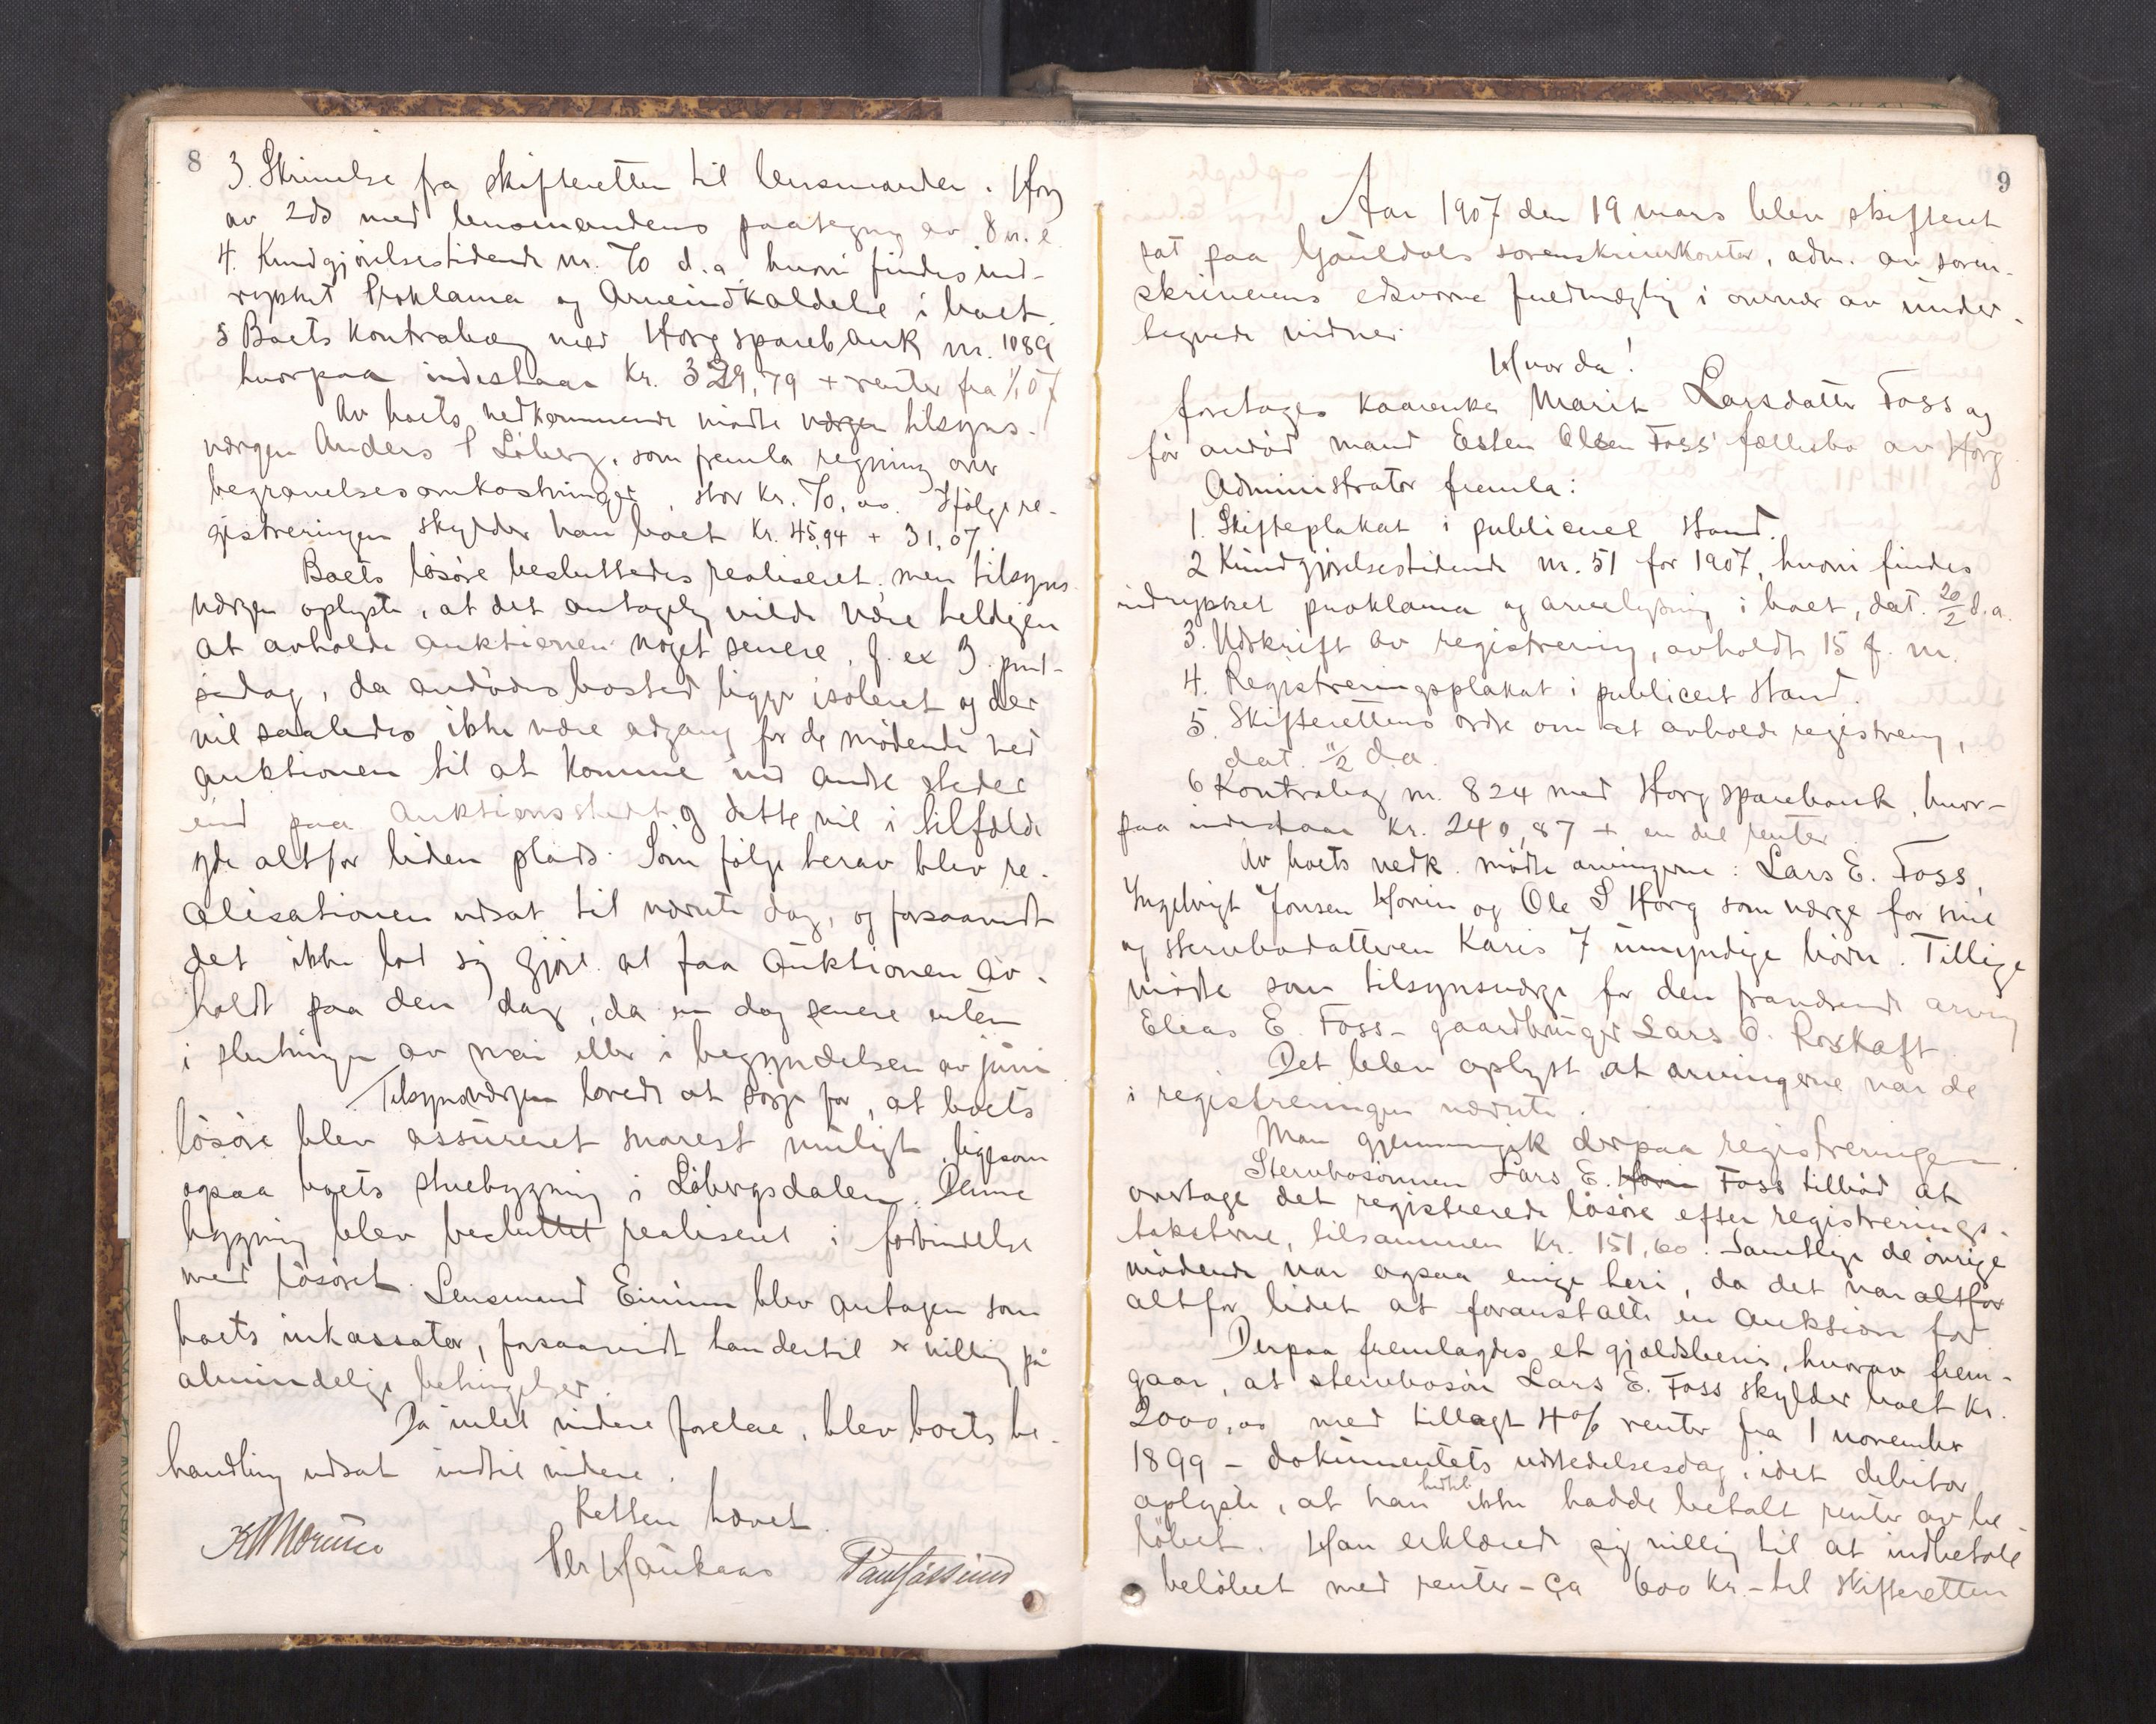 8
3. Skrivelse fra skifteretten til lensmanden i Horg
av 2ds med lensmandens paategning av 8 n. e.
4. Kundgjørelsestidende nr. 70 d.a. hvori findes ind-
rykket Proklama og Arveindkaldelse i boet.
5 Boets Kontrabog med Horg sparebank nr. 1089
hvorpaa indestaar Kr. 329,79 + renter fra 1/1 07
Av boets vedkommende mødte værgen tilsyns-
værgen Anders P Løberg, som fremla regning over
begravelsesomkostninger, stor kr. 70,00. Ifølge re-
gistreringen skylder han boet Kr. 45,94 + 31,07
Boets løsøre besluttedes realiseret, men tilsyns
værgen oplyste, at det antagelig vilde være heldigen
at avholde auktionen noget senere, f. ex 3. pint-
sedag, da avdødes bosted ligger isoleret og der
vil saaledes ikke være adgang for de mødende ved
auktionen til at komme ind andre steder
end paa auktionsstedet og dette vil i tilfælde
yde altfor liden plads. Som følge herav blev re-
alisationen utsat til nævnte dag, og forsaavidt
det ikke lod sig gjøre at faa auktionen av-
holdt paa den dag, da en dag senere enten
i slutningen av mai eller i begyndelsen av juni
Tilsynsværgen lovede at sørge for, at boets
løsøre blev assureret snarest muligt, ligesom
ogsaa boets stuebygning i Løbergsdalen. Denne
bygning blev besluttet realiseret i forbindelse
med løsøret. Lensmand Eimun blev antagen som
boets inkassator, forsaavidt han dertil er villig på
almindelige betingelser.
Da intet videre forelaa, blev boets be-
handling udsat indtil videre.
Retten hævet.
Per Haukaas Paul Gåssund
9
Aar 1907 den 19 mars blev skifteret
sat paa Gauldals sorenskriverkontor, adm. av soren-
skriverens edsvorne fuldmægtig i overvær av under-
tegnede vidner.
Hvorda!
foretages kaarenke Marit Larsdatter Foss og
før avdød mand Esten Olsen Foss' fællesbo av Horg
Administrator fremla:
1. Skifteplakat i publiceret stand.
2 Kundgjørelsestidende nr. 51 for 1907, hvori findes
indrykket proklama og arvelysning i boet, dat. 20/2 d.a.
3. Udskrift av registrering, avholdt 15 f. m.
4. Registreringsplakat i publicert stand.
5. Skifterettens ordre om at avholde registrering,
dat. 11/2 d.a.
6 Kontrabog nr. 824 med Horg sparebank, hvor-
paa indestaar Kr. 240,87 + en del renter.
Av boets vedk. mødte arvingerne: Lars E. Foss,
Ingebrigt Jonsen Hovin og Ole S Horg som værge for sine
og stervbodatteren Karis 7 umyndige børn. Tillige
mødte som tilsynsværge for den fraværende arving
Elias E. Foss - gaardbruger Lars O. Roskaft.
Det blev oplyst at arvingerne var de
i registreringen nævnte.
Man gjennemgik derpaa registreringen.
Stervbosønnen Lars E. Hovin Foss tilbød at
overtage det registrerede løsøre efter registrerings-
taksterne, tilsammen Kr. 151,60. Samtlige de øvrige
mødende var ogsaa enige heri, da det var altfor
altfor lidet at foranstalte en auktion for
Derpaa fremlagdes et gjældsbevis, hvorav frem-
gaar, at stervbosøn Lars E. Foss skylder boet Kr.
2000,00 med tillagt 4% renter fra 1 november
1899 - dokumentets udstedelsesdag, idet debitor
oplyste, at han hidtil ikke hadde betalt renter av be-
løbet. Han erklærede sig villig til at indbetale
beløbet med renter - ca 600 kr. - til skifteretten